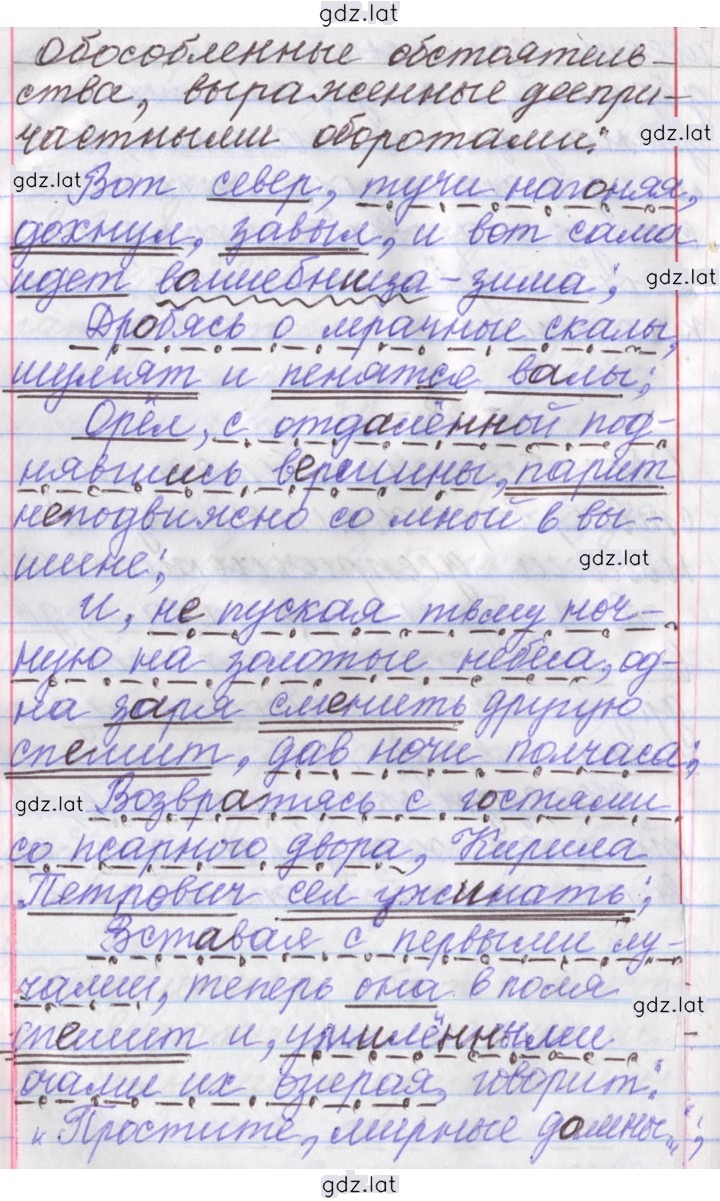 gdz.lat
обособленные обстоятель-
ства, выраженные деепри-
частными оборотами:
gdz.lat
gdz.lat
Вот север, тучи нагоняя,
дохнул, завыл, и вот сама
идет волшебница-зима;
gdz.lat
Дробясь о мрачные скалы,
шумят и пенятся валы;
Орёл, с отдалённой под-
нявшись вершины, парит
неподвижно со мной в вы-
шине;
gdz.lat
И, не пуская тьму ноч-
ную на золотые небеса, од-
на заря сменить другую
спешит, дав ночи полчаса;
gdz.lat
Возвратясь с гостями
со псарного двора, Кирила
Петрович сел ужинать;
Вставая с первыми лу-
чами, теперь она в поля
gdz.lat
спешит и, умилёнными
очами их озирая, говорит:
"Простите, мирные долины...;
gdz.lat